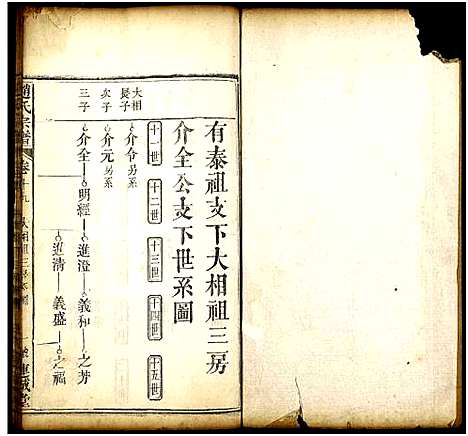 有泰祖支下大相祖三房
介全公支下世系圖
十一世
十二世
十三世
十四世
十五世
大相
長子
次子
三子
介令另系
介元另系
介全
明經
進澄
義和
之芳
進清
義盛
之福
趙氏宗譜
卷十九
大相祖三房系圖